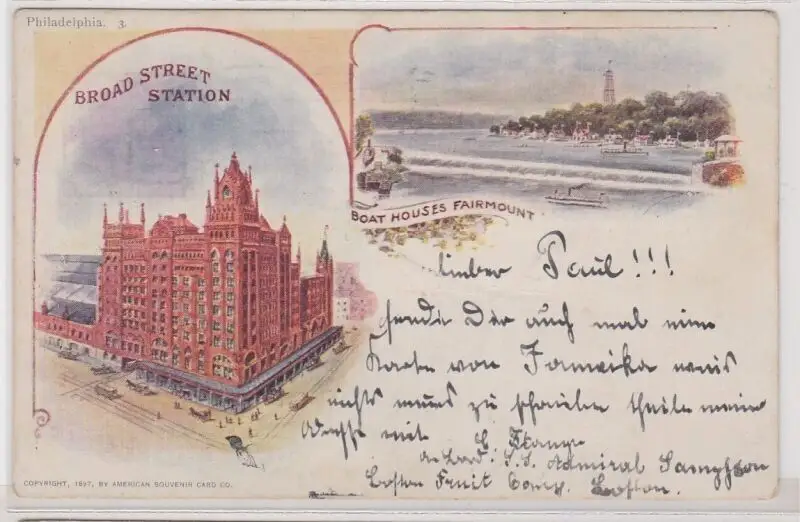 Philadelphia. 3.
BROAD STREET
STATION
BOAT HOUSES FAIRMOUNT
lieber Paul!!!
sende Dir auch mal eine
Karte von Jameika weis
nichts neues zu schreiben theile meine
Adresse mit
an Bord: S.S. Admiral Sampson
Boston Fruit Comp. Boston.
COPYRIGHT, 1897, BY AMERICAN SOUVENIR CARD CO.